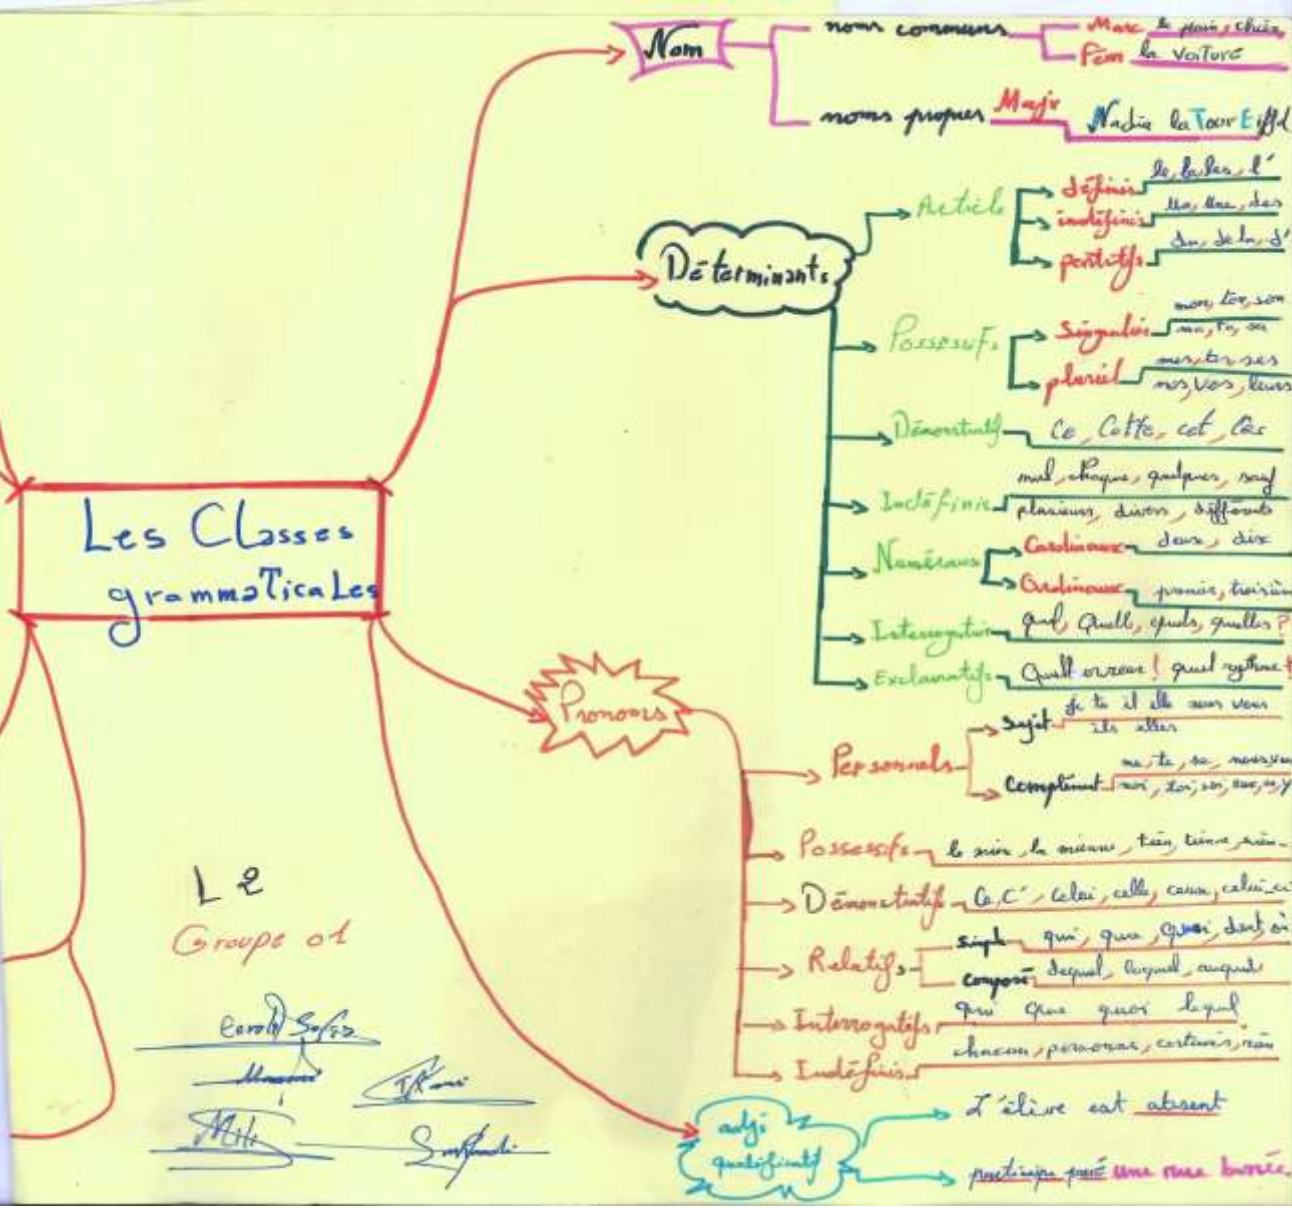 Les Classes
grammaticales
Nom
noms communs
Masc le pain, chien
Fém la voiture
noms propres Maj
Nadia la Tour Eiffel
Déterminants
Article
définis le, la, les, l'
indéfinis un, une, des
partitifs du, de la, d'
Possessifs
Singulier mon, ton, son
ma, ta, sa
pluriel mes, tes, ses
nos, vos, leurs
Démonstratif Ce, Cette, cet, Ces
Indéfinis nul, chaque, quelques,
plusieurs, divers, différents
Numéraux
Cardinaux deux, dix
Ordinaux premier, troisièm
Interrogatifs quel, Quelle, quels, quelles ?
Exclamatifs Quelle ! quel rythme !
Pronoms
Personnels
Sujet je tu il elle nous vous
ils elles
Complément me, te, se, nous, vou
moi, toi, soi, eux, en, y
Possessifs le mien, la mienne, tien, tienne, sien
Démonstratifs Ce, C', celui, celle, ceux, celui-ci
Relatifs
simple qui, que, quoi, dont, où
composé lequel,
Interrogatifs qui que quoi lequel
Indéfinis chacun, personne, certains, rien
adj
qualificatif
L'élève est absent
participe passé une rue
L2
Groupe 01